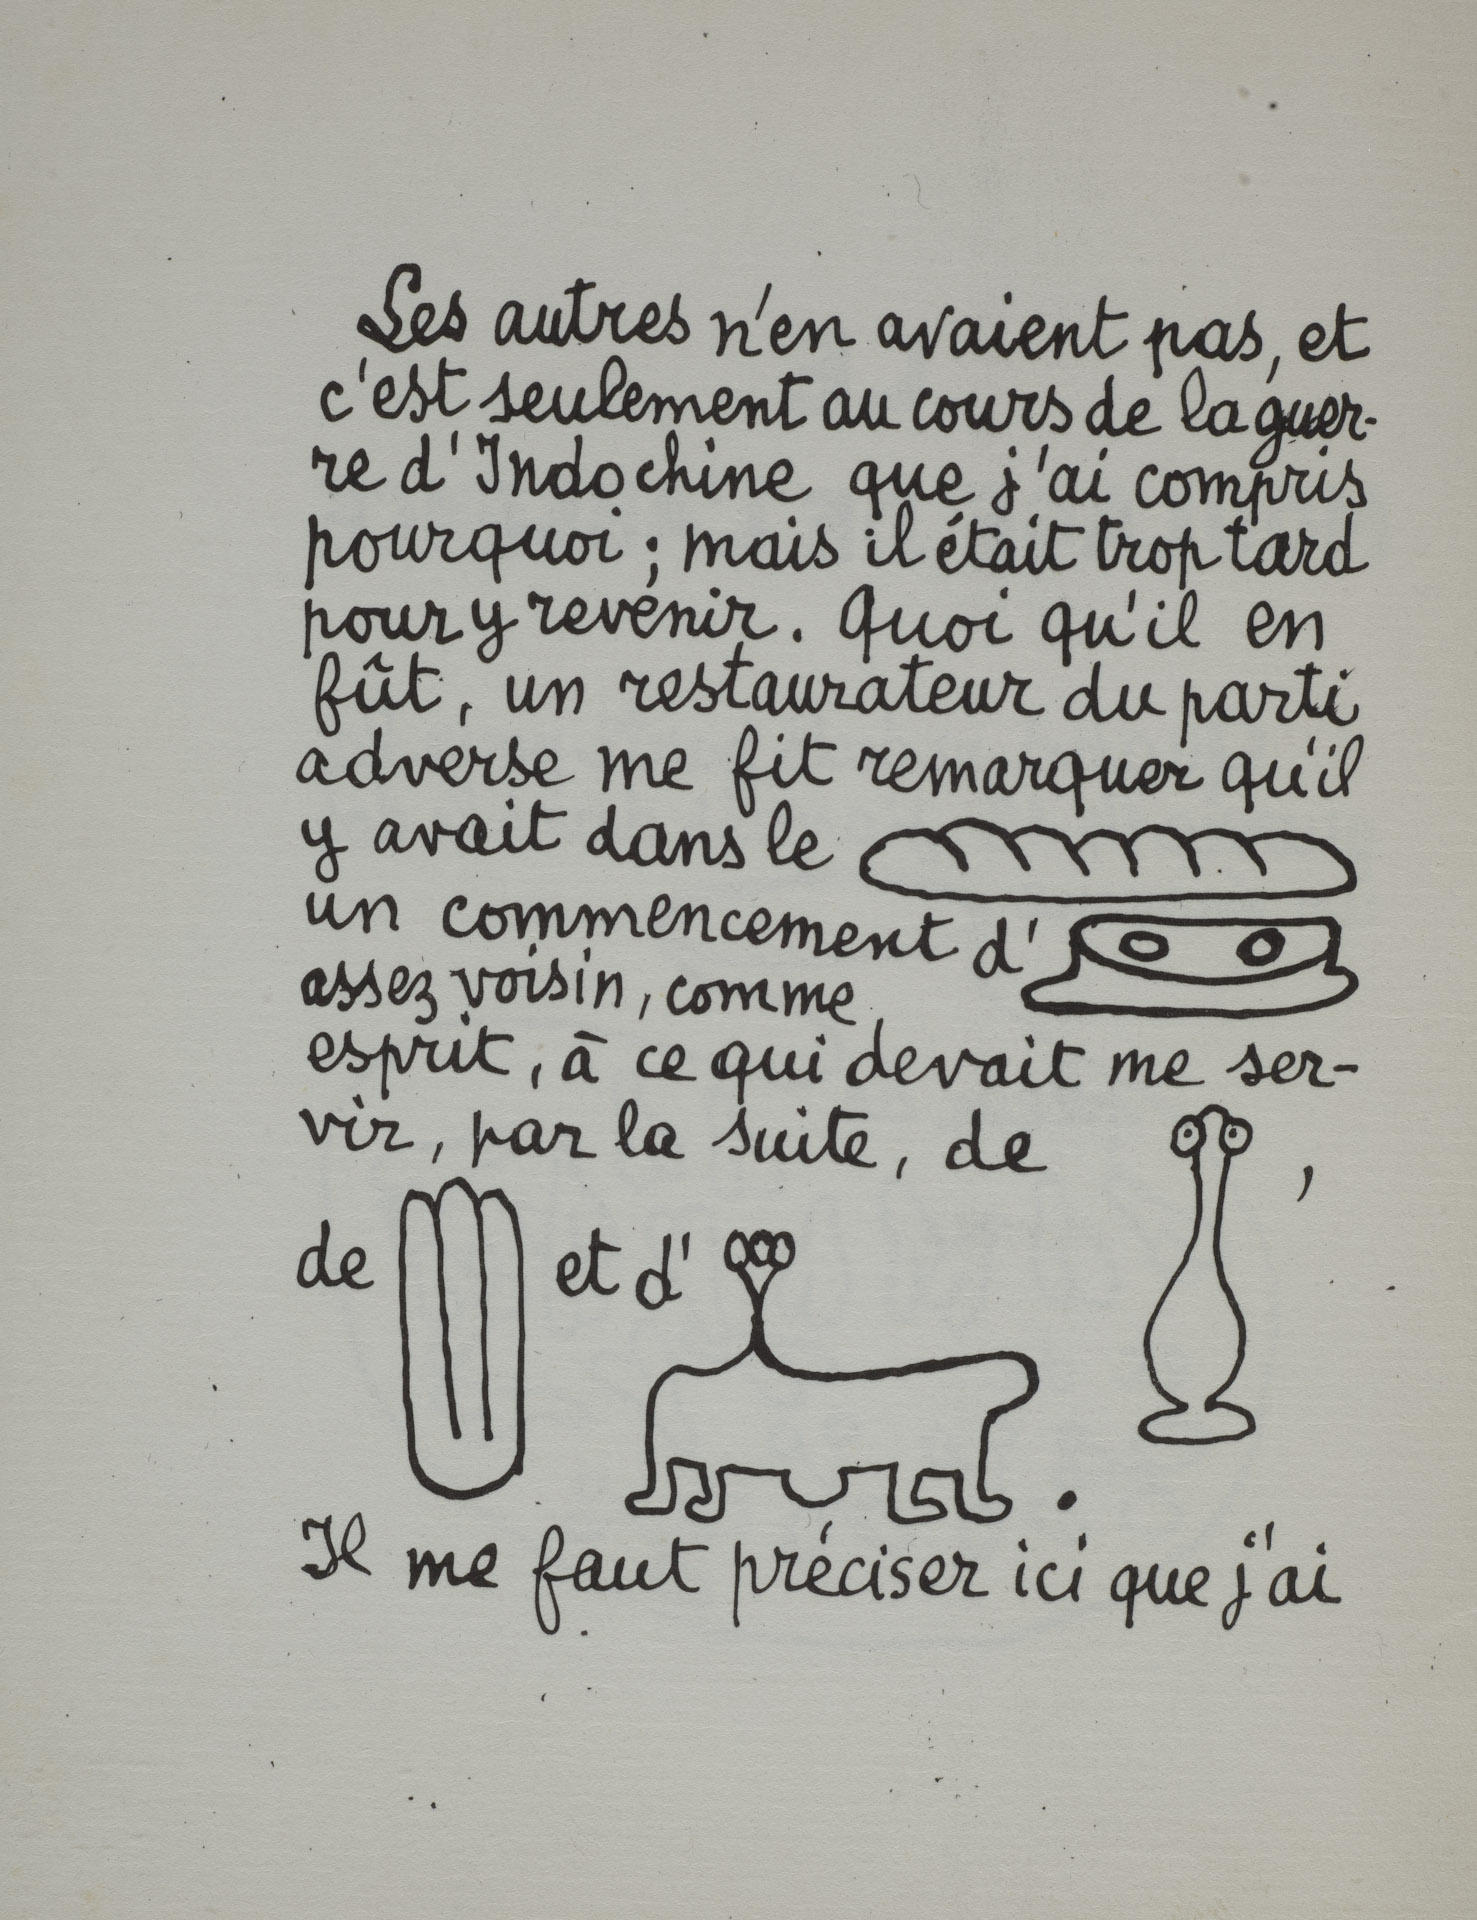 Les autres n'en avaient pas, et
c'est seulement au cours de la guer-
re d'Indochine que j'ai compris
pourquoi ; mais il était trop tard
pour y revenir. Quoi qu'il en
fût, un restaurateur du parti
adverse me fit remarquer qu'il
y avait dans le
un commencement d'
assez voisin, comme
esprit, à ce qui devait me ser-
vir, par la suite, de ,
de et d' .
Il me faut préciser ici que j'ai